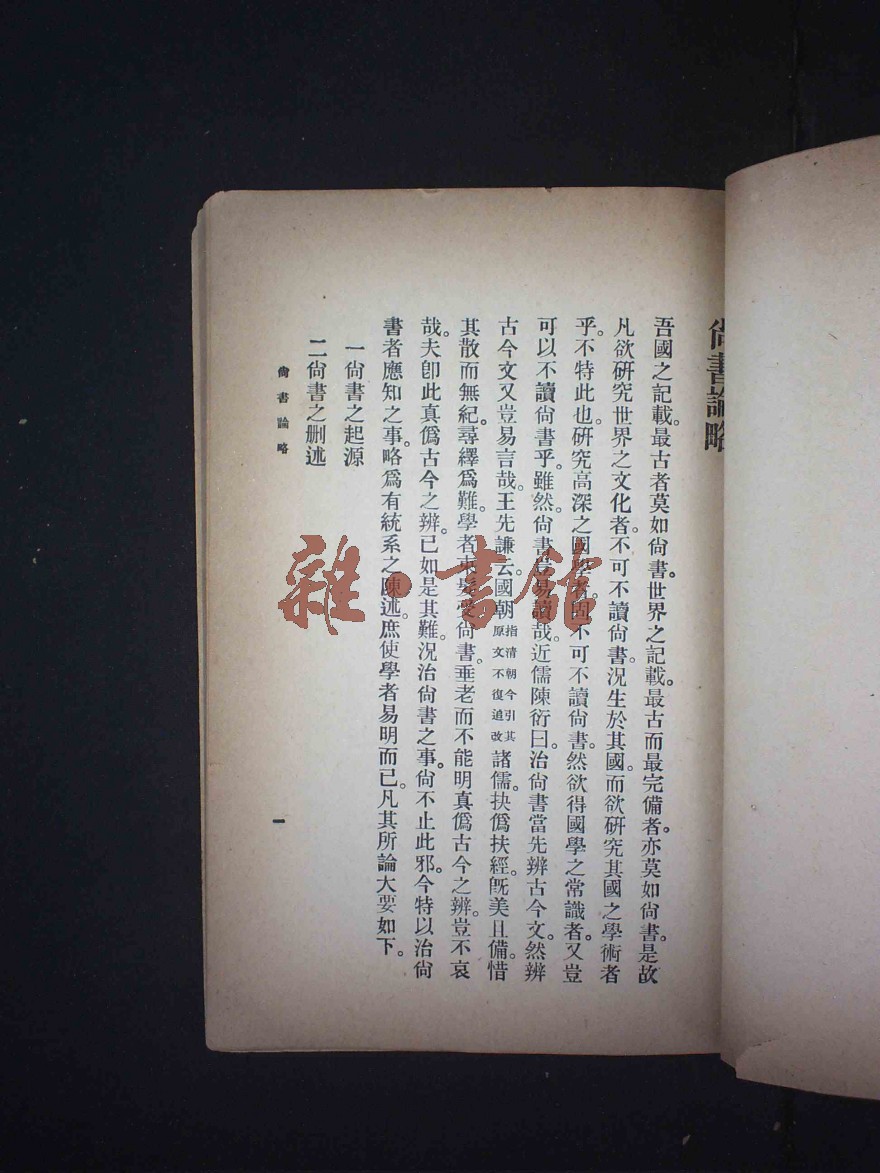 尙書論略
吾國之記載。最古者莫如尙書。世界之記載。最古而最完備者。亦莫如尙書。是故
凡欲研究世界之文化者。不可不讀尙書。況生於其國。而欲研究其國之學術者
乎。不特此也。研究高深之國學者。固不可不讀尙書。然欲得國學之常識者。又豈
可以不讀尙書乎。雖然。尙書豈易讀哉。近儒陳衍曰。治尙書當先辨古今文。然辨
古今文又豈易言哉。王先謙云。國朝指淸朝今引其原文不復追改諸儒。抉僞扶經。旣美且備。惜
其散而無紀。尋繹爲難。學者束髮受尙書。垂老而不能明眞僞古今之辨。豈不哀
哉。夫卽此眞僞古今之辨。已如是其難。況治尙書之事。尙不止此邪。今特以治尙
書者應知之事。略爲有統系之陳述。庶使學者易明而已。凡其所論大要如下。
一尙書之起源
二尙書之刪述
尙書論略
一
雜·書館